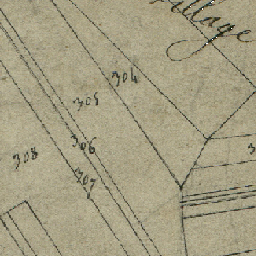 village
304
305
306
308
307
3